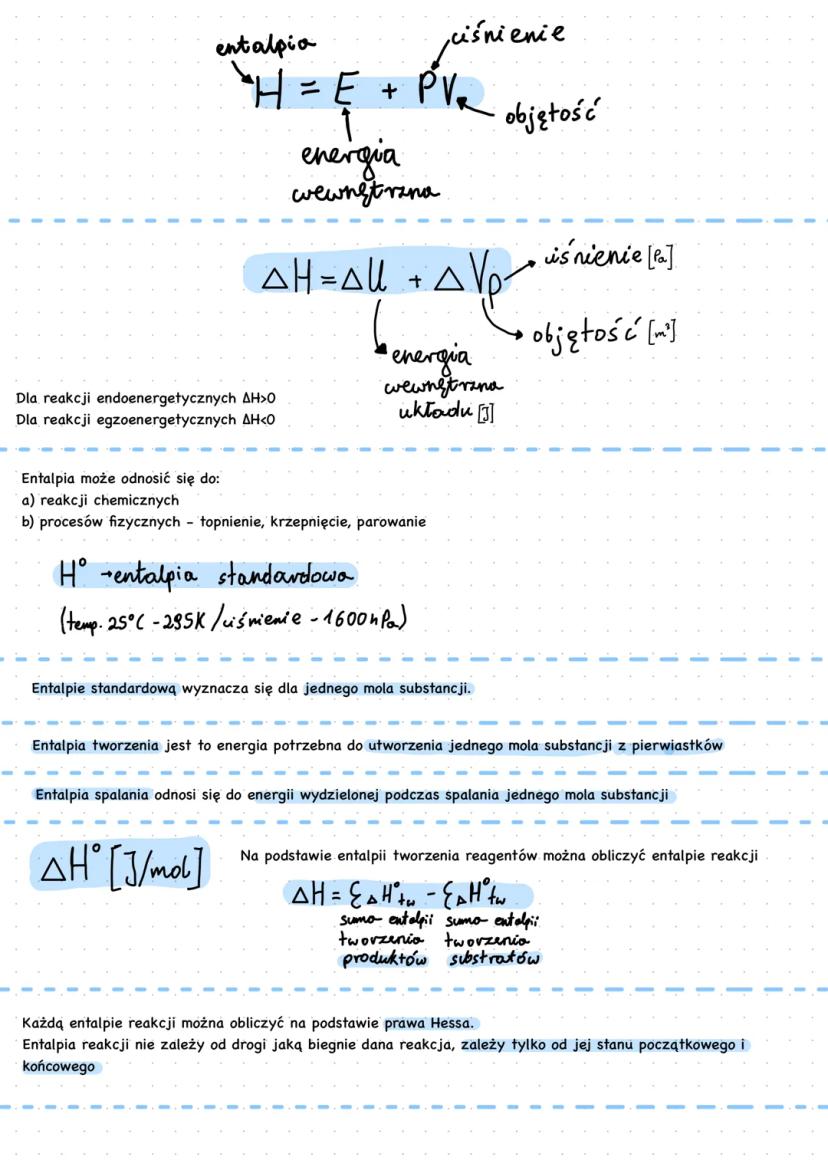 entalpia
ciśnienie
H = E + PV
objętość
energia
wewnętrzna
ΔH = ΔU + ΔVp
ciśnienie [Pa]
objętość [m³]
energia
wewnętrzna
układu [J]
Dla reakcji endoenergetycznych ΔH>0
Dla reakcji egzoenergetycznych ΔH<0
Entalpia może odnosić się do:
a) reakcji chemicznych
b) procesów fizycznych - topnienie, krzepnięcie, parowanie
H° → entalpia standardowa
(temp. 25°C - 295K / ciśnienie - 1600hPa)
Entalpie standardową wyznacza się dla jednego mola substancji.
Entalpia tworzenia jest to energia potrzebna do utworzenia jednego mola substancji z pierwiastków
Entalpia spalania odnosi się do energii wydzielonej podczas spalania jednego mola substancji
ΔH° [J/mol]
Na podstawie entalpii tworzenia reagentów można obliczyć entalpie reakcji
ΔH = Σ ΔH°tw - Σ ΔH°tw
suma entalpii suma entalpii
tworzenia tworzenia
produktów substratów
Każdą entalpie reakcji można obliczyć na podstawie prawa Hessa.
Entalpia reakcji nie zależy od drogi jaką biegnie dana reakcja, zależy tylko od jej stanu początkowego i
końcowego